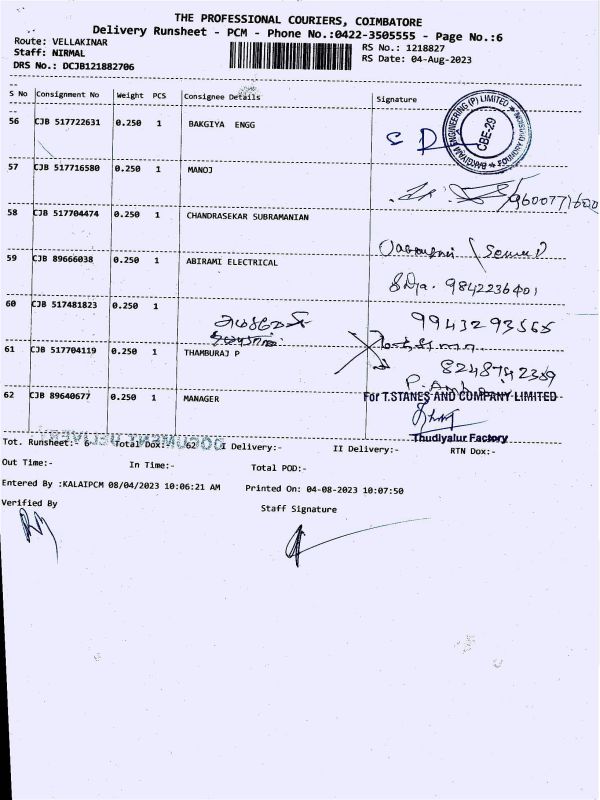 THE PROFESSIONAL COURIERS, COIMBATORE
Delivery Runsheet - PCM - Phone No.:0422-3505555 - Page No.:6
Route: VELLAKINAR
RS No.: 1218827
Staff: NIRMAL
RS Date: 04-Aug-2023
DRS No.: DCJB121882706
S No Consignment No Weight PCS Consignee Details Signature
BAKGIYAM ENGINEERING (P) LIMITED
CBE-29
56 CJB 517722631 0.250 1 BAKGIYA ENGG
57 CJB 517716580 0.250 1 MANOJ
9600771600
58 CJB 517704474 0.250 1 CHANDRASEKAR SUBRAMANIAN
59 CJB 89666038 0.250 1 ABIRAMI ELECTRICAL
9842236401
60 CJB 517481823 0.250 1
9943293565
61 CJB 517704119 0.250 1 THAMBURAJ P
8248742389
62 CJB 89640677 0.250 1 MANAGER
For T.STANES AND COMPANY LIMITED
Thudiyalur Factory
Tot. Runsheet:- 6 Total Dox:- 62 I Delivery:- II Delivery:- RTN Dox:-
DOCUMENT DELIVERY
Out Time:- In Time:- Total POD:-
Entered By :KALAIPCM 08/04/2023 10:06:21 AM Printed On: 04-08-2023 10:07:50
Verified By
Staff Signature